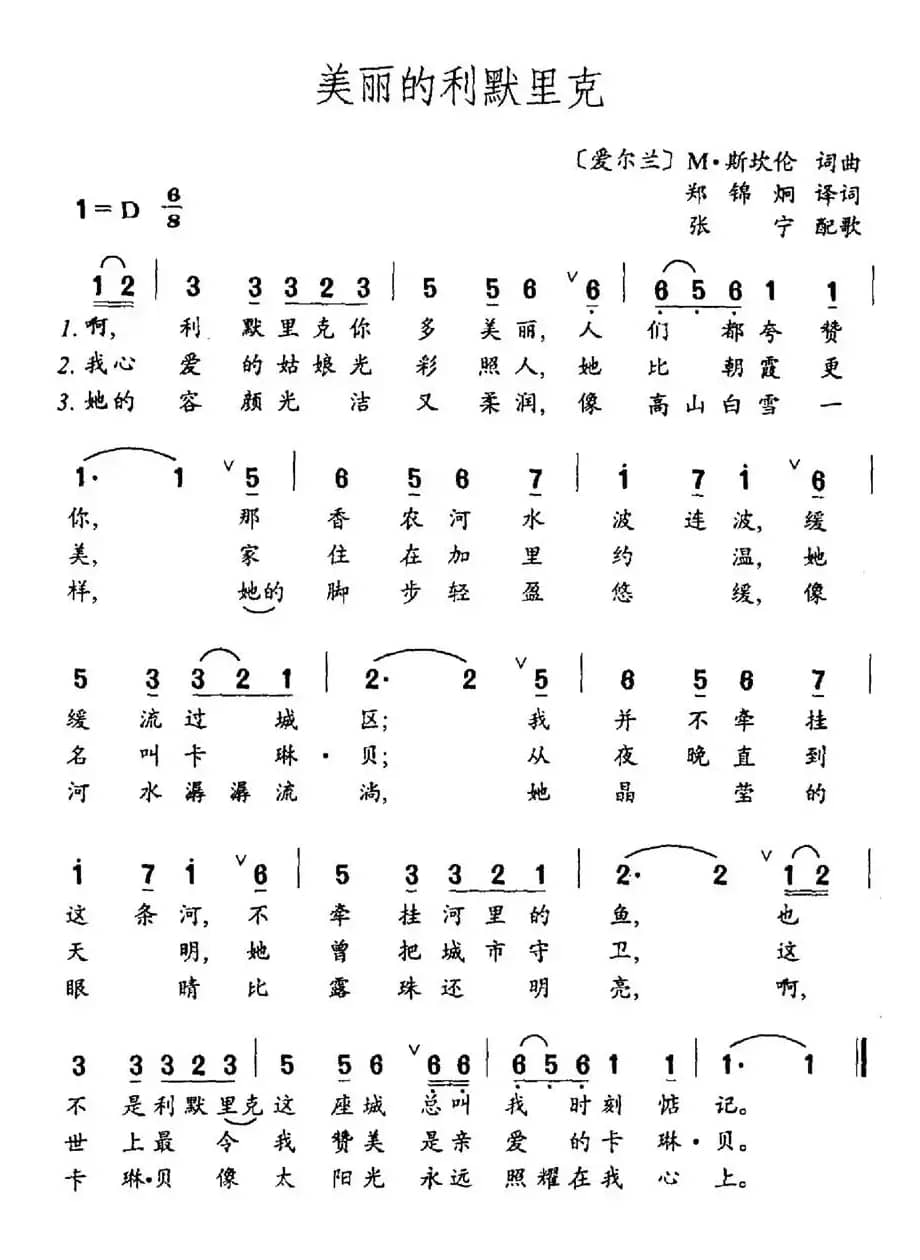 美丽的利默里克
〔爱尔兰〕M·斯坎伦 词曲
郑锦炯 译词
1=D 6/8
张宁 配歌
1 2 | 3 3 3 2 3 | 5 5 6 ∨ 6 | 6 5 6 1 1 |
1. 啊, 利默里克你多美丽, 人们都夸赞
2. 我心爱的姑娘光彩照人, 她比朝霞更
3. 她的容颜光洁又柔润, 像高山白雪一
1· 1 ∨ 5 | 6 5 6 7 | i 7 i ∨ 6 |
你, 那香农河水波连波, 缓
美, 家住在加里约温, 她
样, 她的脚步轻盈悠缓, 像
5 3 3 2 1 | 2· 2 ∨ 5 | 6 5 6 7 |
缓流过城区; 我并不牵挂
名叫卡琳·贝; 从夜晚直到
河水潺潺流淌, 她晶莹的
i 7 i ∨ 6 | 5 3 3 2 1 | 2· 2 ∨ 1 2 |
这条河, 不牵挂河里的鱼, 也
天明, 她曾把城市守卫, 这
眼睛比露珠还明亮, 啊,
3 3 3 2 3 | 5 5 6 ∨ 6 6 | 6 5 6 1 1 | 1· 1 ‖
不是利默里克这座城总叫我时刻惦记。
世上最令我赞美是亲爱的卡琳·贝。
卡琳·贝像太阳光永远照耀在我心上。